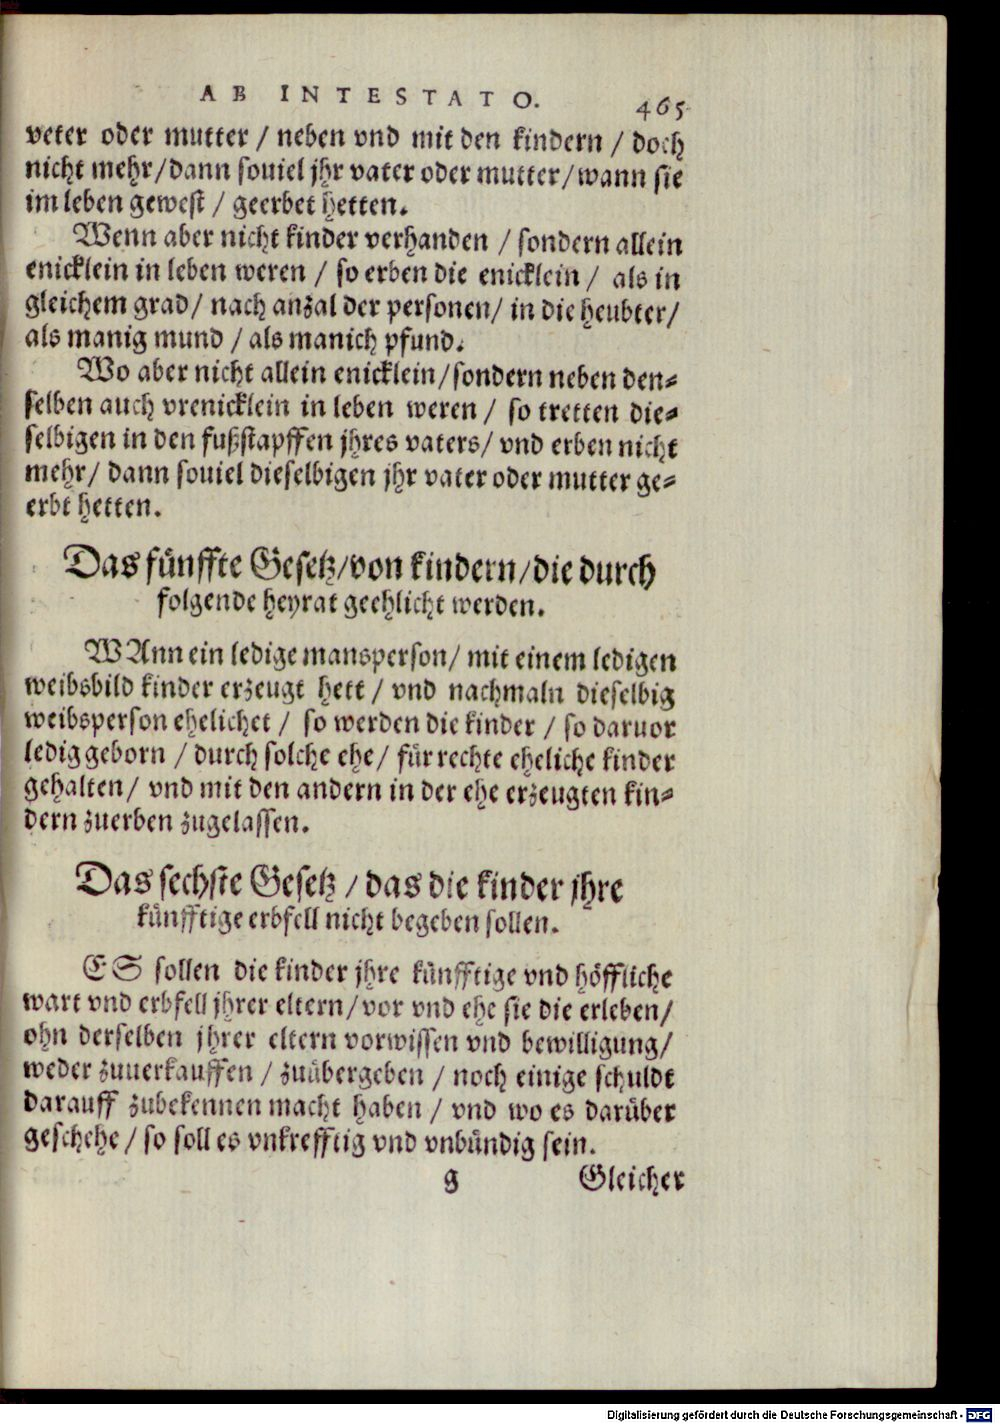 AB INTESTATO. 465
veter oder mutter / neben vnd mit den kindern / doch
nicht mehr / dann souiel jhr vater oder mutter / wann sie
im leben gewest / geerbet hetten.
Wenn aber nicht kinder verhanden / sondern allein
enicklein in leben weren / so erben die enicklein / als in
gleichem grad / nach anzal der personen / in die heubter /
als manig mund / als manich pfund.
Wo aber nicht allein enicklein / sondern neben den=
selben auch vrenicklein in leben weren / so tretten die=
selbigen in den fußstapffen jhres vaters / vnd erben nicht
mehr / dann souiel dieselbigen jhr vater oder mutter ge=
erbt hetten.
Das fünffte Gesetz / von kindern / die durch
folgende heyrat geehlicht werden.
WAnn ein ledige mansperson / mit einem ledigen
weibsbild kinder erzeugt hett / vnd nachmaln dieselbig
weibsperson ehelichet / so werden die kinder / so daruor
ledig geborn / durch solche ehe / für rechte eheliche kinder
gehalten / vnd mit den andern in der ehe erzeugten kin=
dern zuerben zugelassen.
Das sechste Gesetz / das die kinder jhre
künfftige erbfell nicht begeben sollen.
ES sollen die kinder jhre künfftige vnd höffliche
wart vnd erbfell jhrer eltern / vor vnd ehe sie die erleben /
ohn derselben jhrer eltern vorwissen vnd bewilligung /
weder zuuerkauffen / zuübergeben / noch einige schuldt
darauff zubekennen macht haben / vnd wo es darüber
geschehe / so soll es vnkrefftig vnd vnbündig sein.
g Gleicher
Digitalisierung gefördert durch die Deutsche Forschungsgemeinschaft - DFG